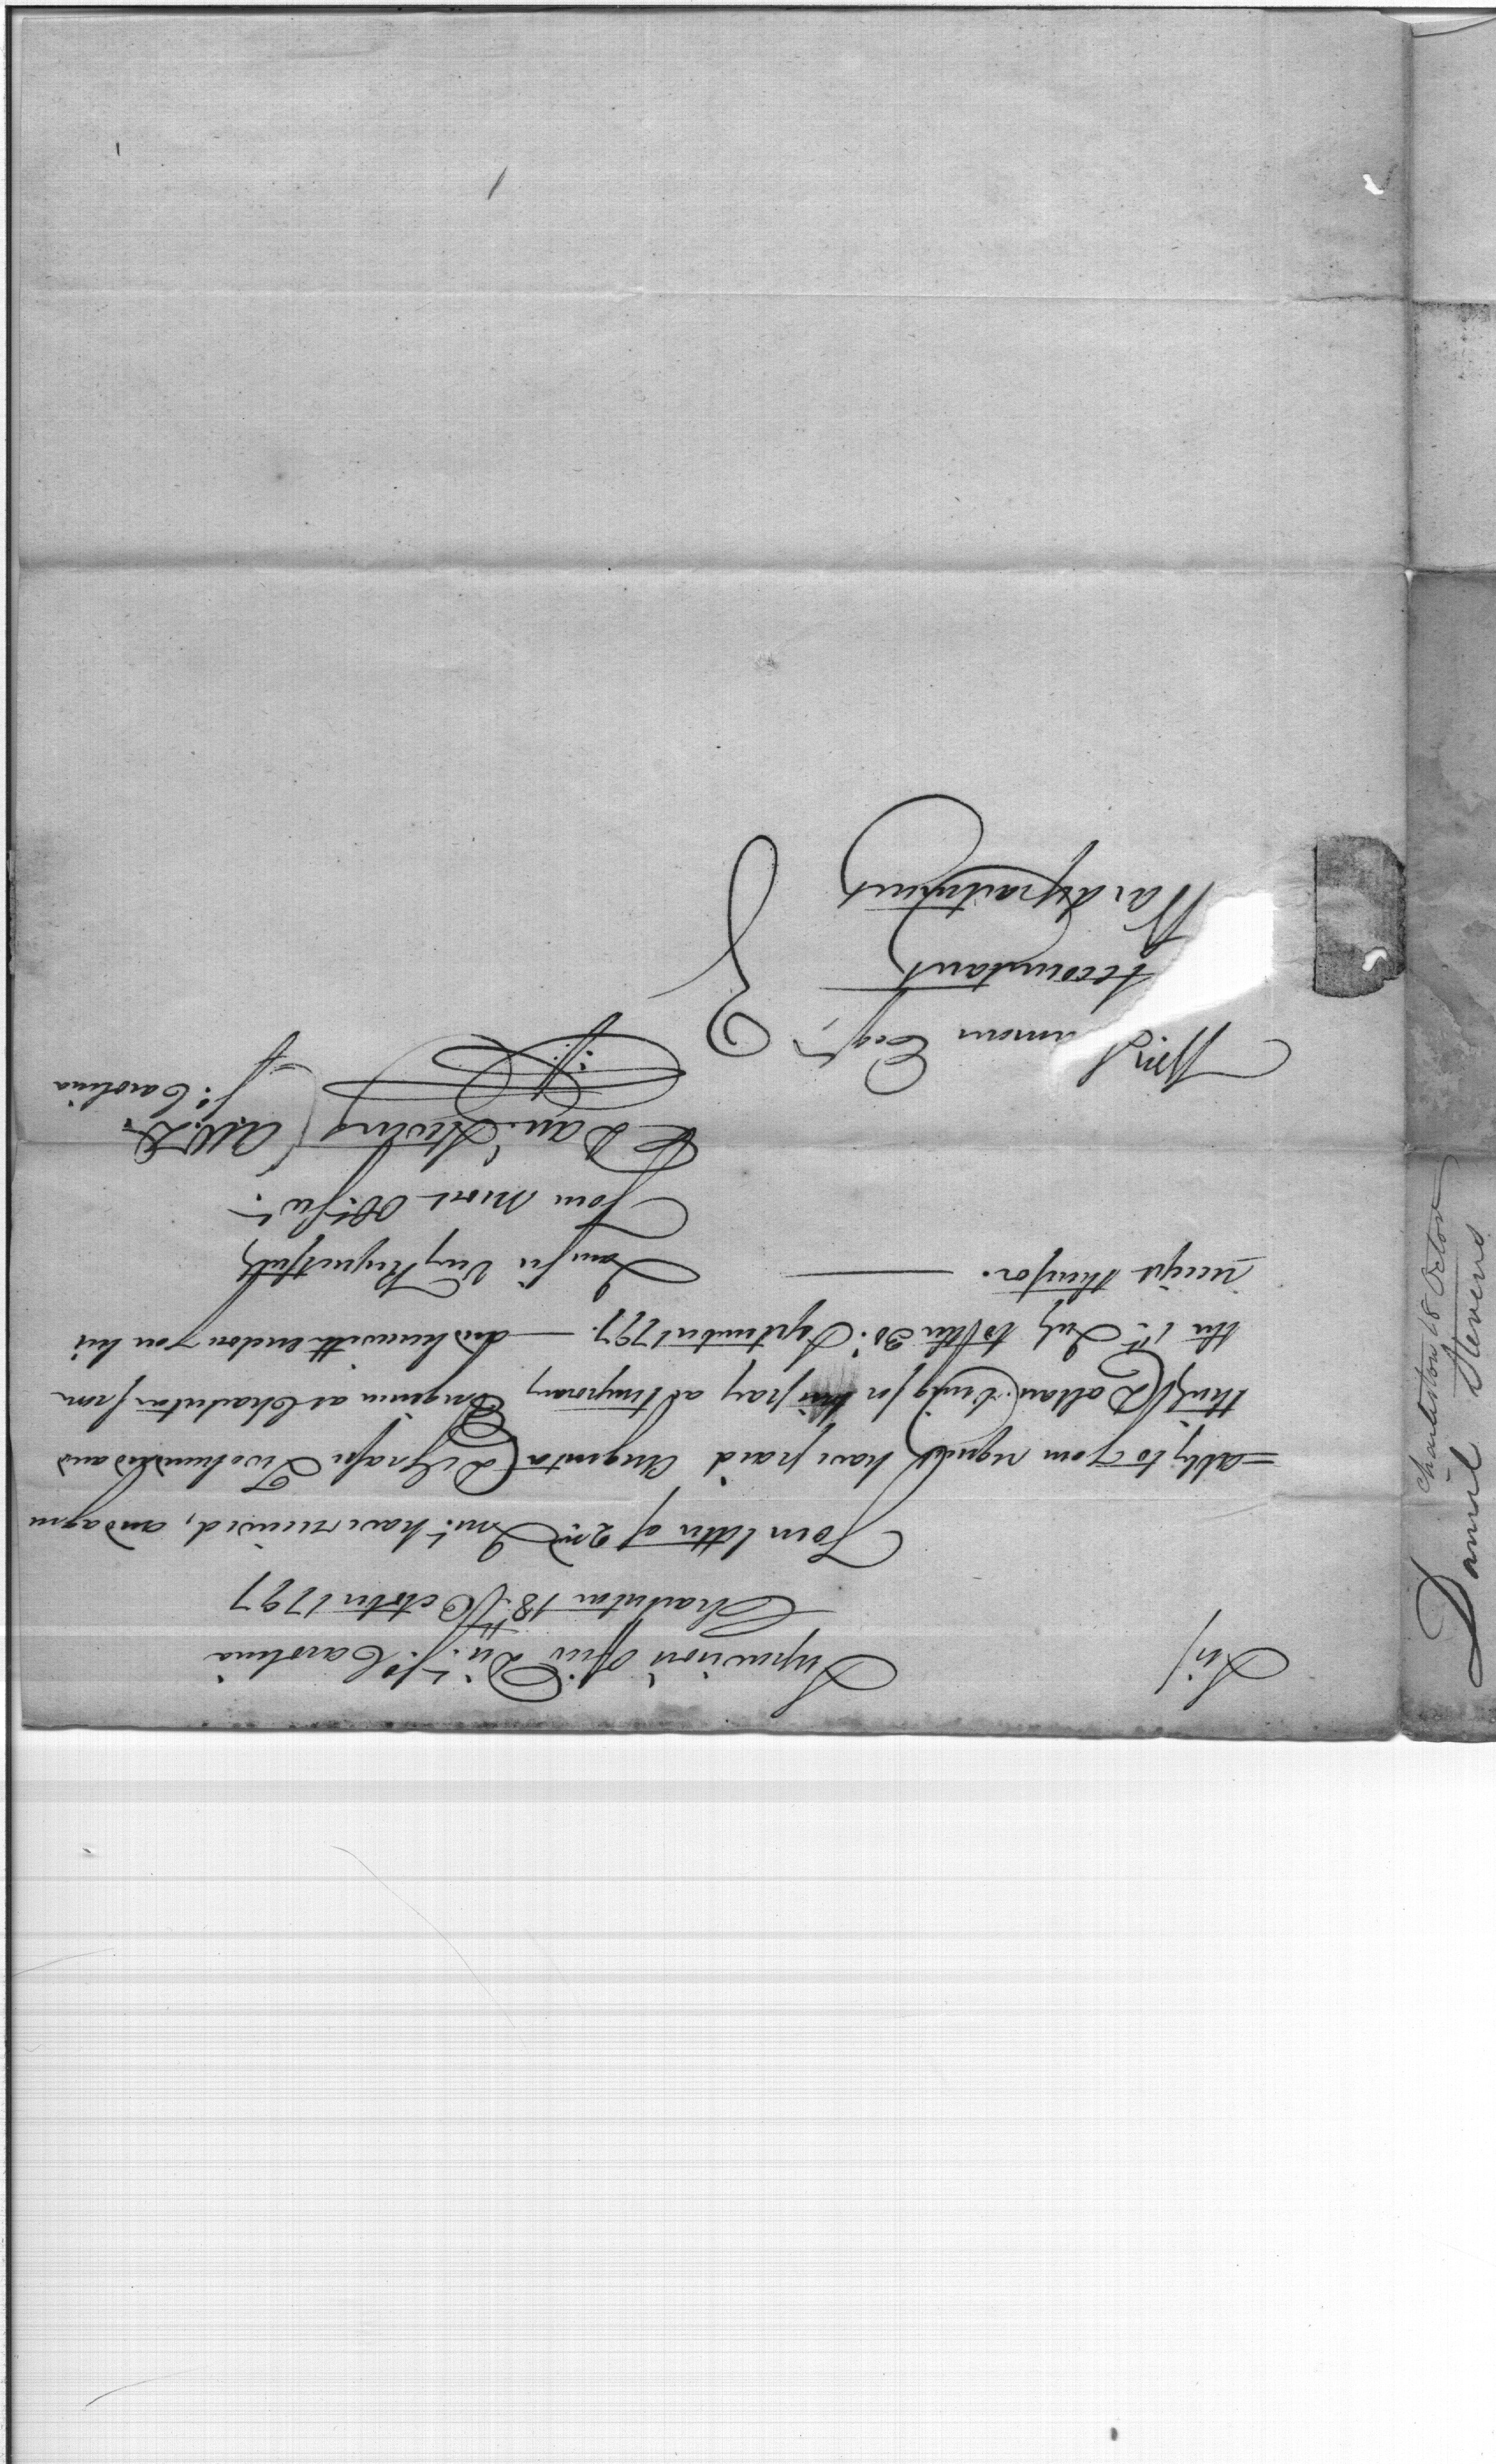 Supervisors Office Dis.t S.o Carolina
Charleston 18.th October 1797
Sir/
Your letter of 2nd Inst. have received, and agre
=ably to your request have paid Augustu DeGrasse Two hundred and
thirty Dollars being for his pay as temporary Engineer at Charleston from
the 1.st July to the 30.th September 1797. — and herewith enclose you his
receipt therefor. —
I am Sir Very Respectfully
Your most Ob.t Ser.t
Dan.l Stevens
S.o Carolina
Will
mmons Esq.r
Accountant
War department
Charleston 18 Octor
Daniel Stevens